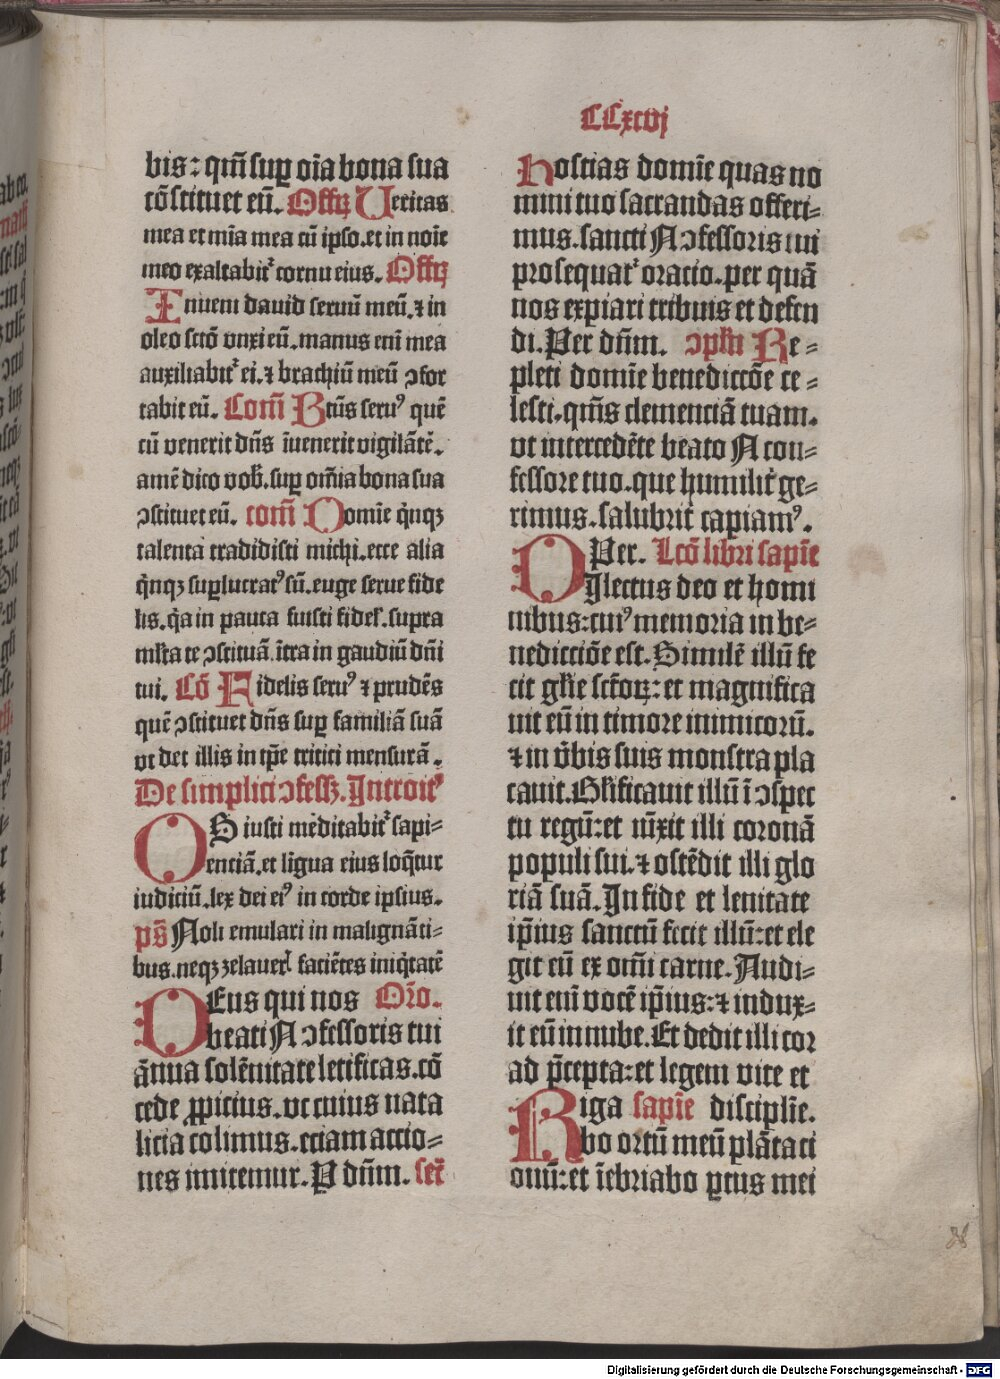 CCxcvj
bis: qm̄ sup oīa bona sua
cōstituet eū. Offꝝ Veritas
mea et mīa mea cū ipso. et in noīe
meo exaltabit᷑ cornu eius. Offꝝ
Inueni dauid seruū meū. ⁊ in
oleo sctō vnxi eū. manus enī mea
auxiliabit᷑ ei. ⁊ brachiū meū ↄfor
tabit eū. Com̄ Btūs seruꝰ quē
cū venerit dn̄s īuenerit vigilātē.
amē dico vob̄. sup om̄ia bona sua
ↄstituet eū. com̄ Domīe q̄nqꝫ
talenta tradidisti michi. ecce alia
q̄nqꝫ suplucratꝰ sū. euge serue fide
lis. q̄a in pauca fuisti fidel̄. supra
ml̄ta te ↄstituā. ītra in gaudiū dn̄i
tui. Cō Fidelis seruꝰ ⁊ prudēs
quē ↄstituet dn̄s sup familiā suā
vt det illis in tp̄e tritici mensurā.
De simplici ↄfess. Introit᷑
OS iusti meditabit᷑ sapi-
enciā. et ligua eius loq̄tur
iudiciū. lex dei eiꝰ in corde ipsius.
ps̄ Noli emulari in malignāti-
bus. neqꝫ zelauer̄ faciētes iniq̄tatē
DEus qui nos Orō.
beati N ↄfessoris tui
ānua solēnitate letificas. cō
cede ꝓpicius. vt cuius nata
licia colimus. eciam actio-
nes imitemur. P dn̄m. secr̄
Hostias domīe quas no
mini tuo sacrandas offeri-
mus. sancti N ↄfessoris tui
prosequat᷑ oracio. per quā
nos expiari tribuis et defen
di. Per dn̄m. ↄpln̄ Re-
pleti domīe benedictōe ce-
lesti. qm̄s clemenciā tuam.
vt intercedēte beato N con-
fessore tuo. que humilit̄ ge-
rimus. salubrit̄ capiamꝰ.
Per. Lcō libri sapīe
DIlectus deo et homi
nibus: cuiꝰ memoria in be-
nedicciōe est. Similē illū fe
cit gl̄ie sctōꝝ: et magnifica
uit eū in timore inimicorū.
⁊ in v̄bis suis monstra pla
cauit. Gl̄ificauit illū ī ↄspec
tu regū: et iūxit illi coronā
populi sui. ⁊ ostēdit illi glo
riā suā. In fide et lenitate
ip̄ius sanctū fecit illū: et ele
git eū ex om̄i carne. Audi-
uit enī vocē ip̄ius: ⁊ indux-
it eū in nube. Et dedit illi cor
ad p̄cepta: et legem vite et
Riga sapīe disciplīe.
bo ortū meū plātaci
onū: et īebriabo ꝑtus mei
88
Digitalisierung gefördert durch die Deutsche Forschungsgemeinschaft - DFG